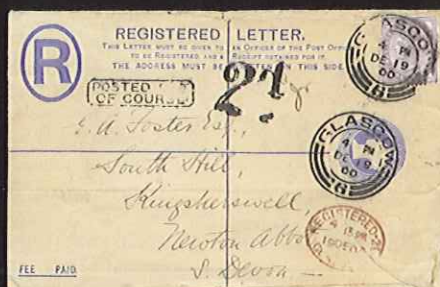 REGISTERED LETTER.
THIS LETTER MUST BE GIVEN TO AN OFFICER OF THE POST OFFICE
TO BE REGISTERED, AND A RECEIPT OBTAINED FOR IT.
THE ADDRESS MUST BE WRITTEN ON THIS SIDE
R
POSTED
OF COURSE
2d
GLASGOW
4 PM
DE 19
00
6
E. A. Foster Esq.,
South Hill,
Kingskerswell,
Newton Abbo
S. Devon
GLASGOW
4 PM
DE 19
00
6
REGISTERED
19 DE 0
FEE PAID.